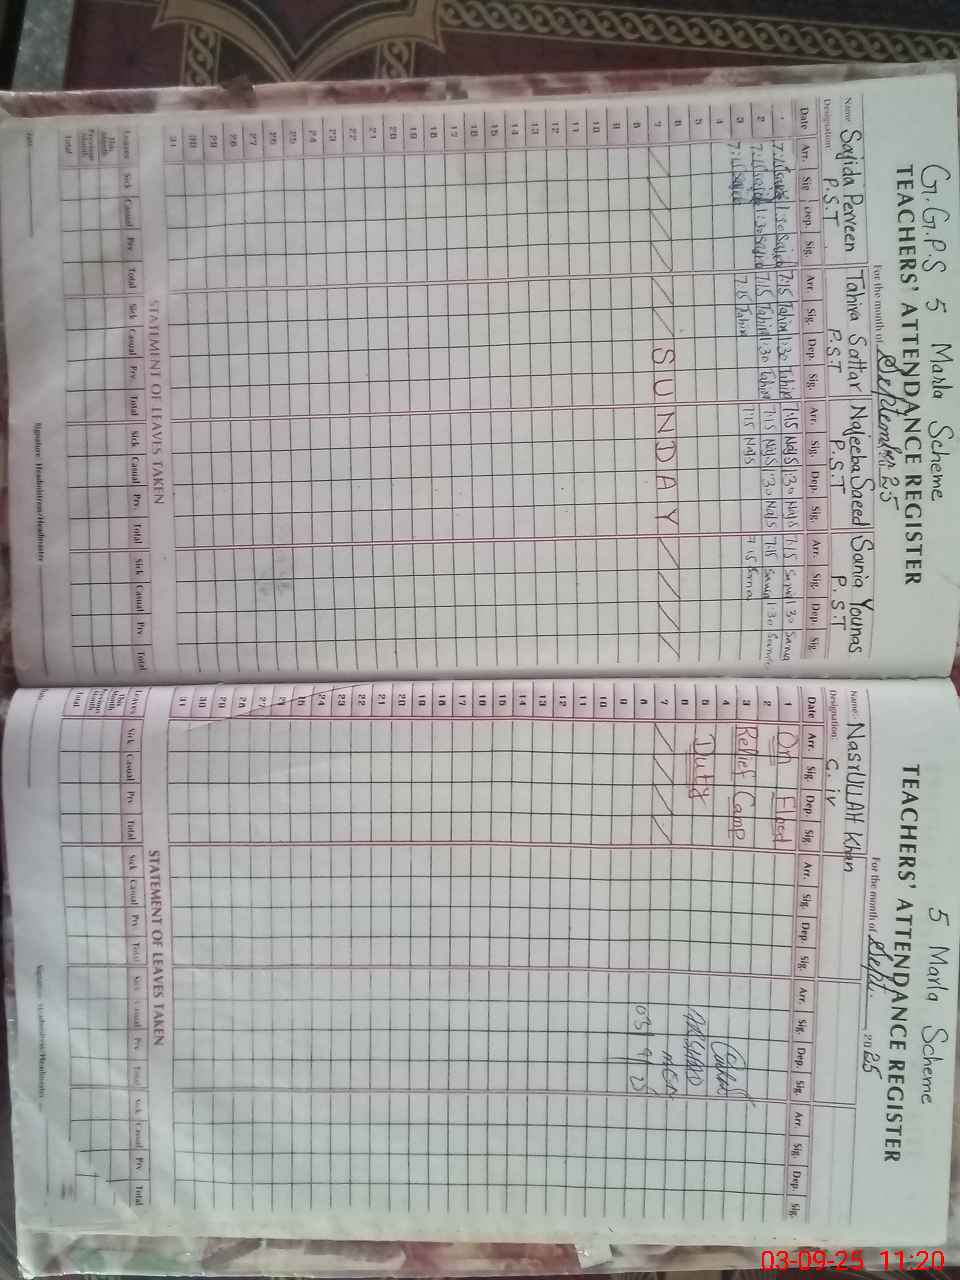 G.G.P.S 5 Marla Scheme
TEACHERS' ATTENDANCE REGISTER
For the month of September 2025
Name Sajida Perveen Tahira Sattar Najeeba Saeed Sania Younas
Designation: P.S.T P.S.T P.S.T P.S.T
Date Arr. Sig. Dep. Sig. Arr. Sig. Dep. Sig. Arr. Sig. Dep. Sig. Arr. Sig. Dep. Sig.
1 7:15 1:30 7:15 Tahira 1:30 Tahira 7:15 NajS 1:30 NajS 7:15 Sania 1:30 Sania
2 7:15 1:30 7:15 Tahira 1:30 Tahira 7:15 NajS 1:30 NajS 7:15 Sania 1:30 Sania
3 7:15 7:15 Tahira 7:15 NajS 7:15 Sania
4
5
6
7 SUNDAY
8
9
10
11
12
13
14
15
16
17
18
19
20
21
22
23
24
25
26
27
28
29
30
31
STATEMENT OF LEAVES TAKEN
Leaves Sick Casual Prv. Total Sick Casual Prv. Total Sick Casual Prv. Total Sick Casual Prv. Total
This Month
Previous Month
Total
Date: Signature: Headmistress/Headmaster
5 Marla Scheme
TEACHERS' ATTENDANCE REGISTER
For the month of Sept. 2025
Name: NasrULLAH Khan
Designation: C. iv
Date Arr. Sig. Dep. Sig. Arr. Sig. Dep. Sig. Arr. Sig. Dep. Sig. Arr. Sig. Dep. Sig.
1 On Flood
2
3 Relief Camp
4
5 Duty
6
7
8 03/9/25
9
10
11
12
13
14
15
16
17
18
19
20
21
22
23
24
25
26
27
28
29
30
31
STATEMENT OF LEAVES TAKEN
Leaves Sick Casual Prv. Total Sick Casual Prv. Total Sick Casual Prv. Total Sick Casual Prv. Total
This Month
Previous Month
Total
Date: Signature: Headmistress/Headmaster
03-09-25 11:20